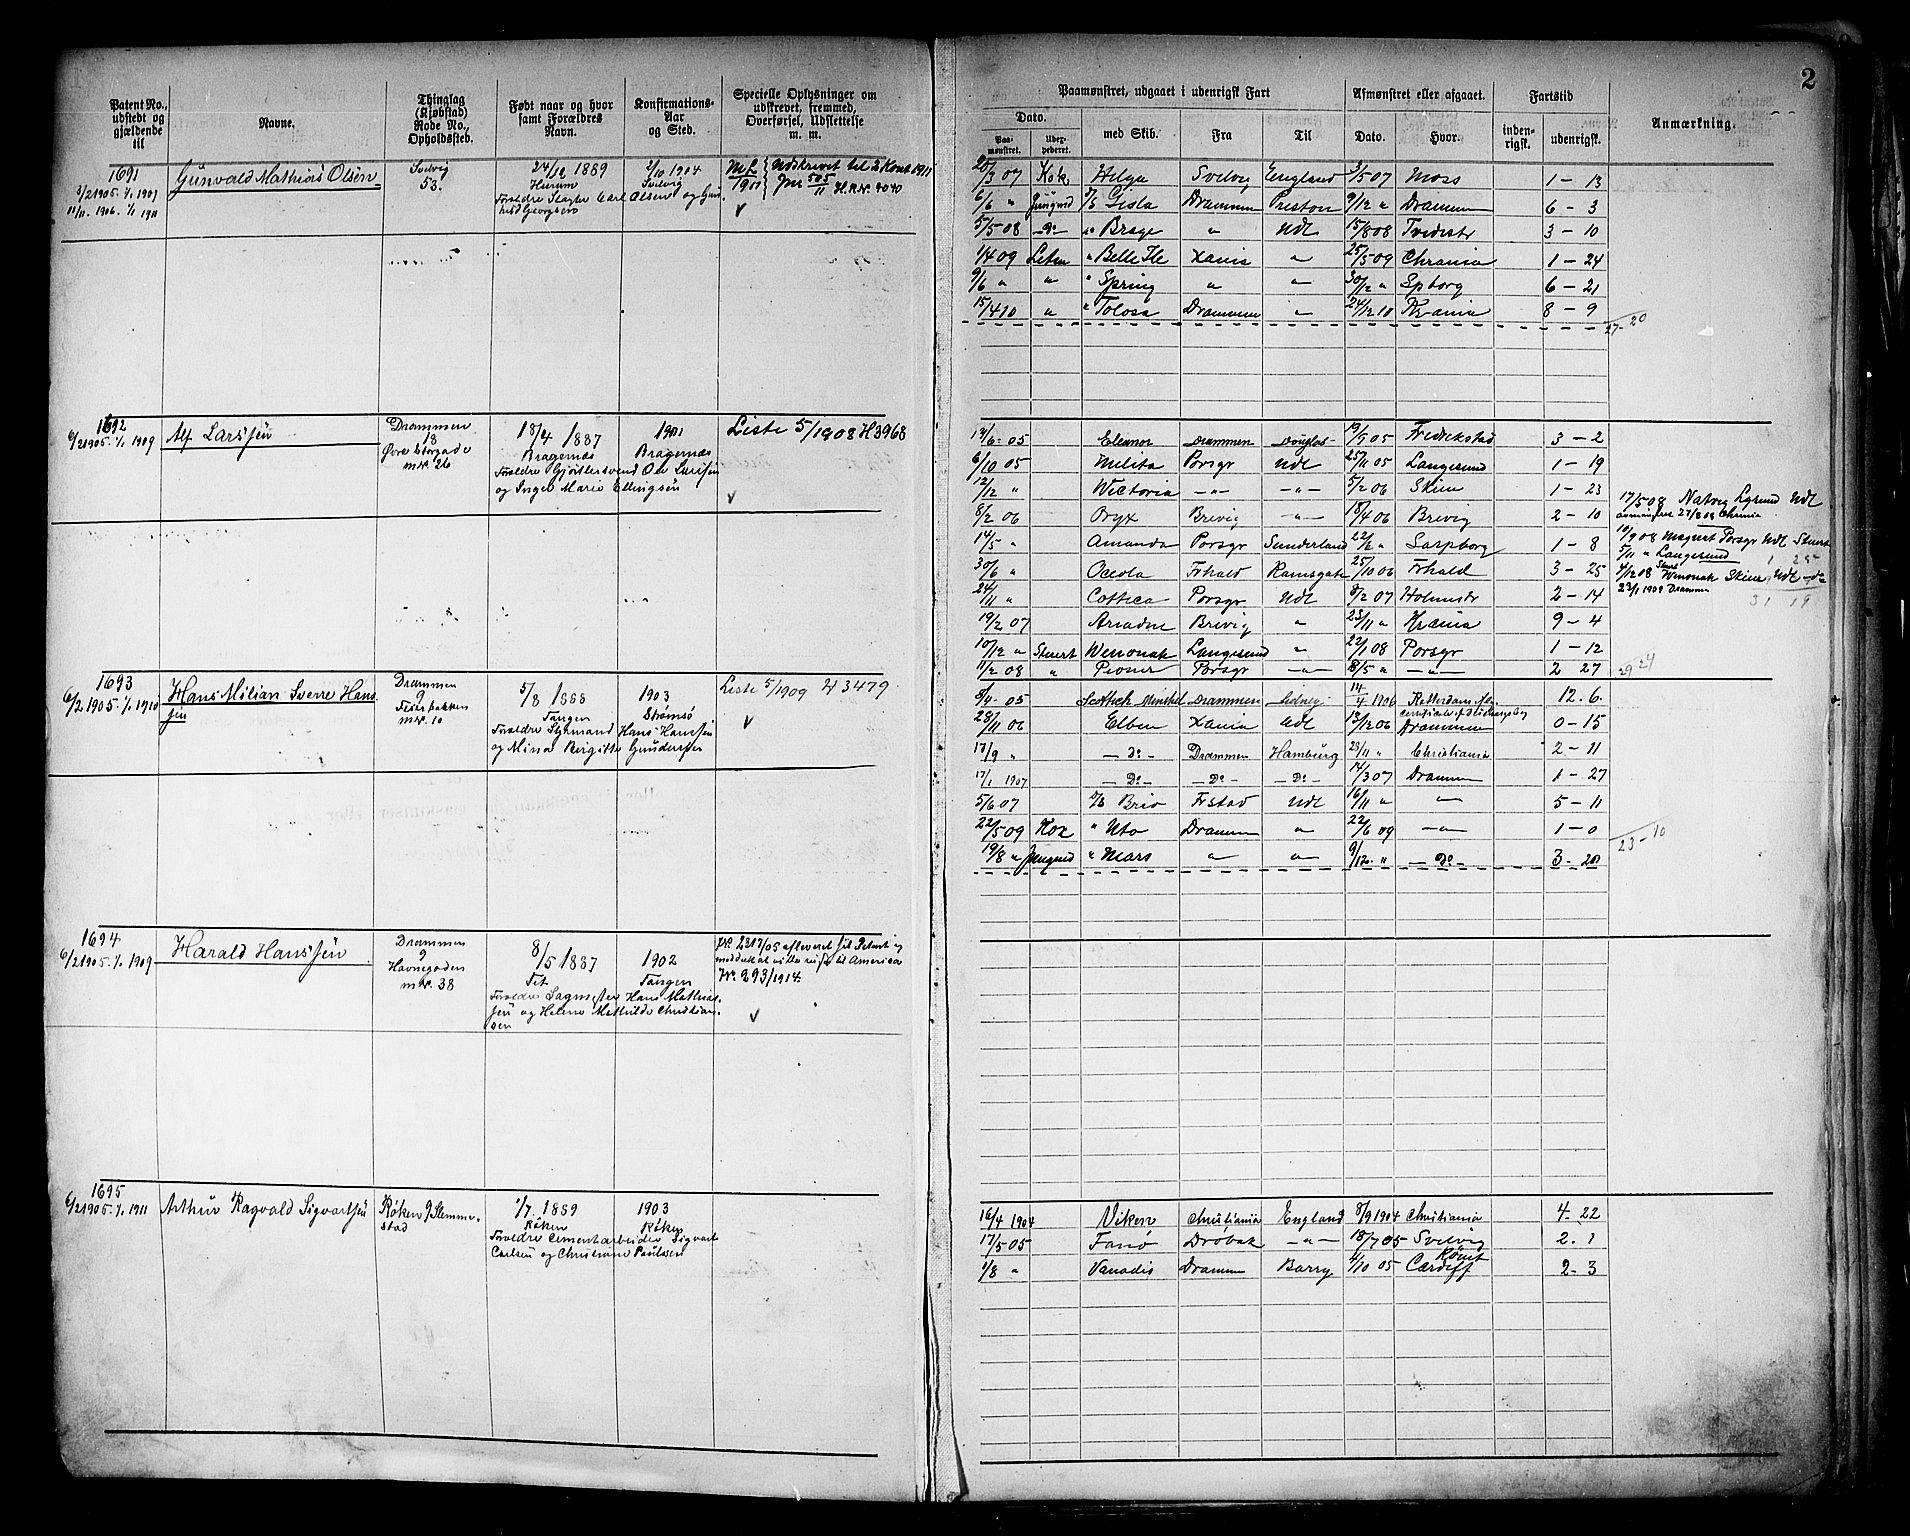 2
Patent No., udstedt og gjældende til
Navne.
Thinglag (Kjøbstad) Rode No., Opholdssted.
Født naar og hvor samt Forældres Navn.
Konfirmations-Aar og Sted.
Specielle Oplysninger om udskrevet, fremmed, Overførsel, Udslettelse m. m.
Paamønstret, udgaaet i udenrigsk Fart
Afmønstret eller afgaaet.
Fartstid
Anmærkning.
Dato.
Paamønstret.
med Skib.
Fra
Til
Dato.
Hvor.
indenrigsk.
udenrigsk.
1691
3/2 1905. 1/1 1907
11/11. 1906. 1/1 1911
Gunvald Mathias Olsen
Svelvig
53.
24/12 1889
Hurum
Forældre Slagter Carl Olsen og
2/10 1904
Svelvig
1911
Udskrevet til 2 Kont 1911
Jnr 505/11 H.R.Nr 4040
20/3 07 Kok Helga Svelvig England 3/5 07 Moss 1 – 13
6/6 " Jungmd S/S Gisla Drammen Preston 9/12 " Drammen 6 – 3
5/5 08 – Do – " Brage " Udl 15/8 08 Tvedestr 3 – 10
1/4 09 Letm " Belle Ile Xania " 25/5 09 Chrania 1 – 24
9/6 " " " Spring " " 30/12 " Spborg 6 – 21
15/4 10 " " Tolosa Drammen " 24/12 10 Krania 8 – 9
27 – 20
1692
6/2 1905. 1/1 1909
Alf Larssen
Drammen
18
Øvre Storgade
mr. 26
18/4 1887
Bragernæs
Forældre Gjørtlersvend Ole Larssen
og Inger Marie Ellingsen
1901
Bragernæs
Liste 5/1908 H3968
12/6 - 05 Eleanor Drammen Douglas 19/9 05 Fredrikstad 3 – 2
6/10 05 Melita Porsgr Udl 25/11 05 Langesund 1 – 19
12/12 " Wictoria – " – – " – 5/2 06 Skien 1 – 23
8/2 06 Oryx Brevig – " – 18/4 06 Brevig 2 – 10
14/5 " Amanda Porsgr Sunderland 22/6 " Sarpborg 1 – 8
30/6 " Oceola Frhald Ramsgate 25/10 06 Frhald 3 – 25
24/11 " Cottica Porsgr Udl 8/2 07 Holmestr 2 – 14
19/2 07 Ariadne Brevig " 23/11 " Krania 9 – 4
10/12 " Stuert Wenonah Langesund " 22/1 08 Porsgr 1 – 12
11/2 08 " Pioner Porsgr – " – 8/5 " – " – 2 27
29 24
17/5 08 Natvig Lgsund Udl
avmønstret 27/8 08 Chrania
10/9 08 Magnet Porsgr Udl Stuert
5/11 " Langesund
1 25
4/12 08 Stuert Wenonah Skien Udl – do
23/1 1909 Drammen
31 19
1693
6/2 1905. 1/1 1910
Hans Milian Sverre Hanssen
Drammen
9
Tverbakken
mr. 10
5/8 1888
Tangen
Forældre Styrmand Hans Hanssen
og Mina Birgitte Gundersen
1903
Strømsø
Liste 5/1909 H 3479
8/4 - 05 Scottish Minstrel Drammen Sidney 14/4 1906 Rotterdam 12. 6.
28/11 06 Elben Xania Udl 13/12 06 Drammen 0 – 15
17/9 " – Do – Drammen Hamburg 28/11 " Christiania 2 – 11
17/1 1907 – Do – – Do – – Do – 14/3 07 Drammen 1 – 27
5/6 07 S/S Brio Frstad Udl 16/11 " " 5 – 11
22/5 09 Kok " Uto Drammen " 22/6 09 – " – 1 – 0
19/8 " Jungmd " Mars " " 9/12 " – Do – 3 – 20
23 – 10
1694
6/2 1905. 1/1 1909
Harald Hanssen
Drammen
9
Havnegaden
mr. 38
8/5 1887
Fet
Forældre Sagmester Hans Mathias-
sen og Helene Mathilde Christian-
sen
1902
Tangen
Nr. 2217/05 afleveret sit Patent og
meddelt at ville reise til America
Nr. 293/1914.
1695
6/2 1905. 1/1 1911
Arthur Ragvald Sigvartsen
Røken 9 Slemme-
stad
1/7. 1889
Røken
Forældre Cementarbeider Sigvart
Carlsen og Christiane Paulsen
1903
Røken
16/4 1904 Viken Christiania England 8/9 1904 Christiania 4 – 22
17/5 05 Fanø Drøbak – " – 18/7 05 Svelvig 2. 1
1/8 " Vanadis Drammen Barry 4/10 05 Rømt Cardiff 2 – 3